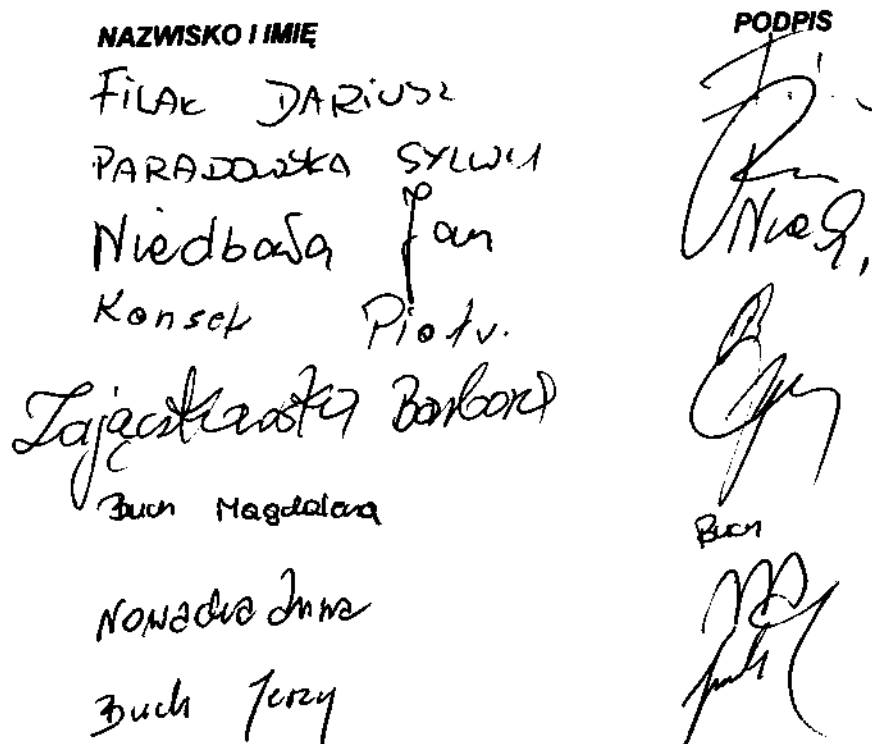 NAZWISKO I IMIĘ PODPIS
FILAK DARIUSZ
PARADOWSKA SYLWIA
Niedbała Jan
Konsek Piotr.
Zajączkowska Barbara
Buch Magdalena Buch
Nowacka Anna
Buch Jerzy